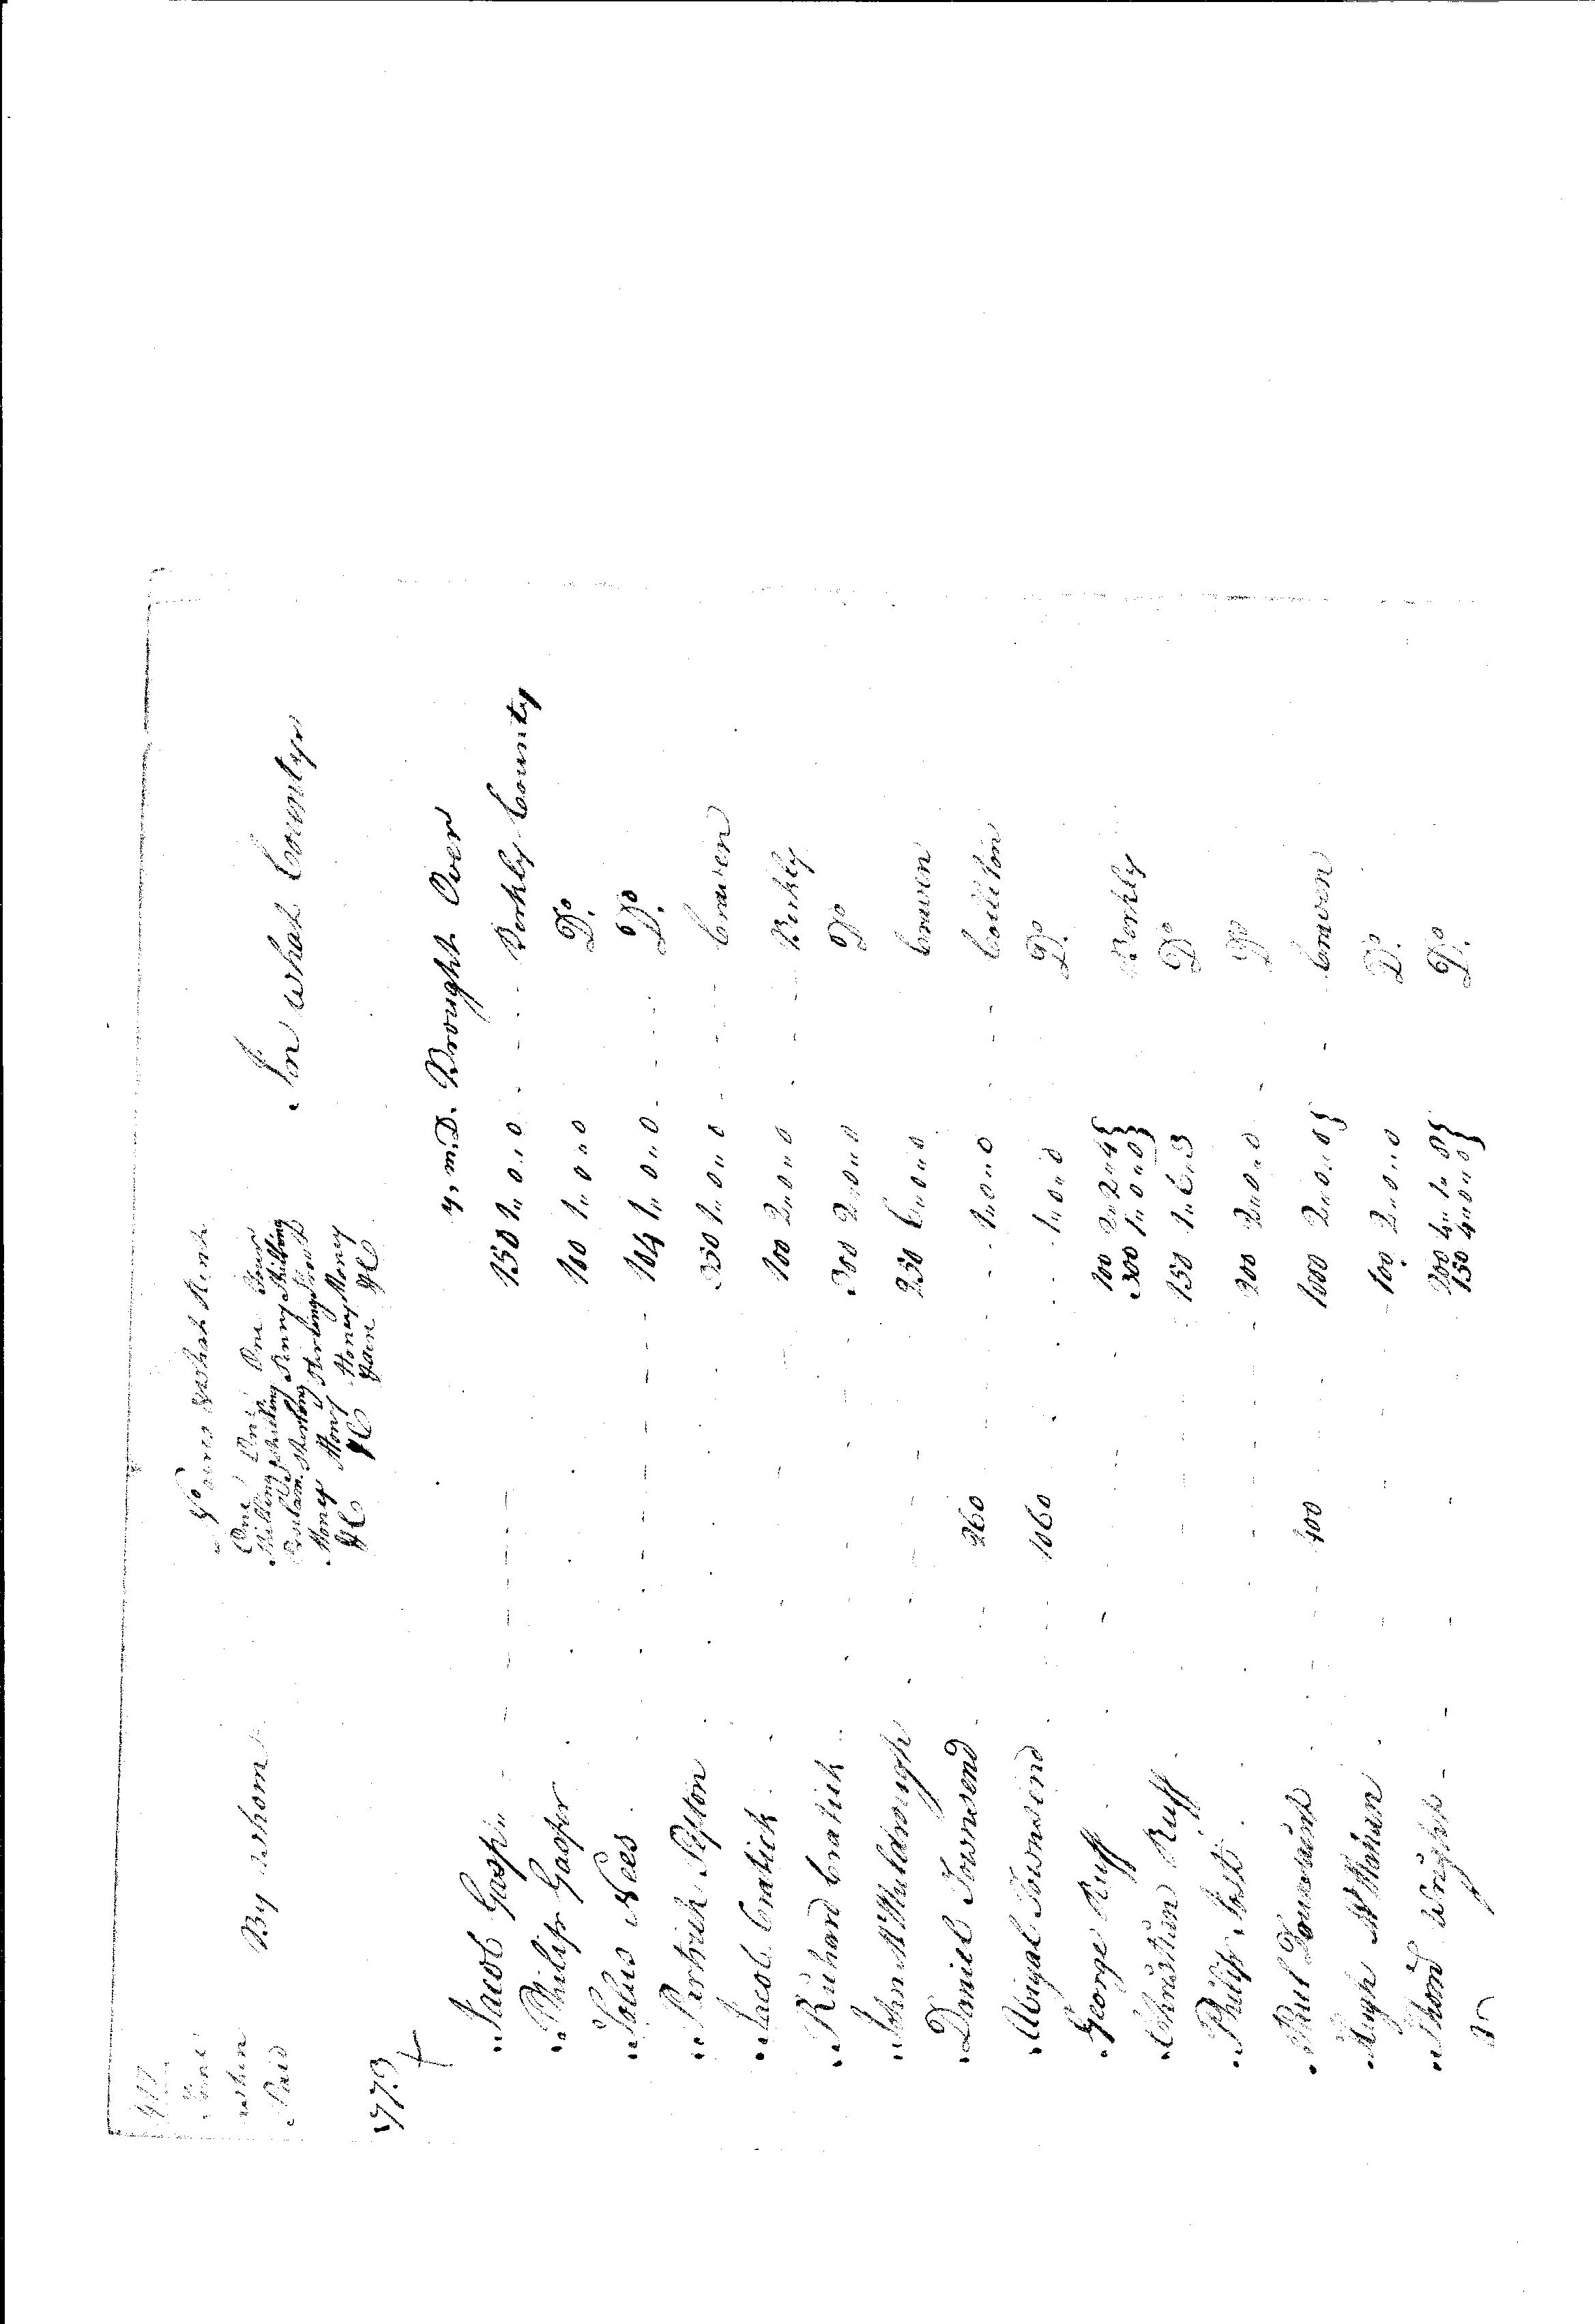 Time when Paid
By whom
No acres & what Rent
In what County
One Shilling Proclam. Money
One Shilling Sterling Money
One Penny Sterling Money
Four Shilling
1773
y, m, D. Brought Over
Jacob Gasp 150 1,, 0,, 0 Berkly County
Philip Gasper 100 1,, 0,, 0 Do.
Solus Nees 104 1,, 0,, 0 Do.
Patrick Sefton 350 1,, 0,, 0 Craven
Jacob Cratick 100 2,, 0,, 0 Berkly
Richard Cratick 300 2,, 0,, 0 Do
John McMuldrough 250 6,, 0,, 0 Craven
Daniel Townsend 260 1,, 0,, 0 Colleton
Abigal Townsend 1060 1,, 0,, 0 Do.
George Ruff 100 2,, 2,, 4 Berkly
300 1,, 0,, 0
Christian Ruff 150 1,, 6,, 3 Do
Philip 200 2,, 0,, 0 Do
Paul Townsend 400 1000 2,, 0,, 0 Craven
Hugh McMahan 100 2,, 0,, 0 Do.
Thomd Wright 200 4,, 1,, 0 Do.
150 4,, 0,, 0